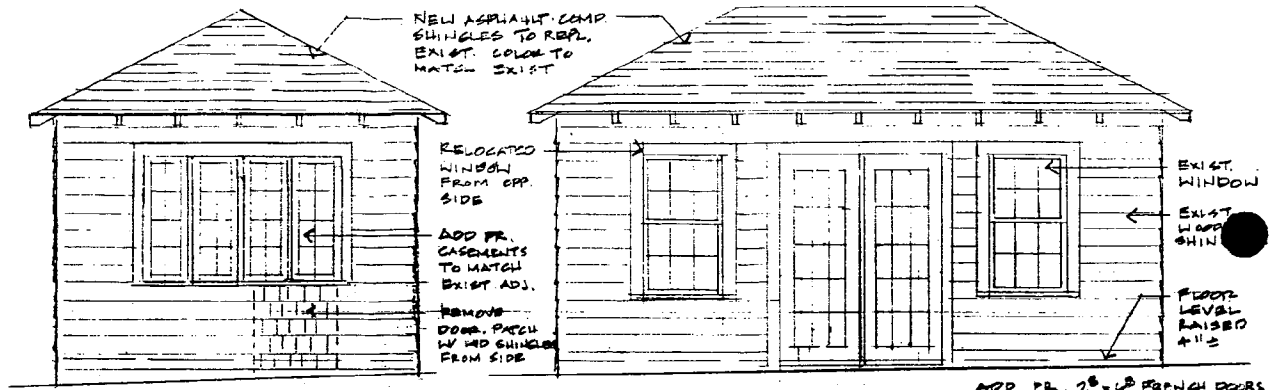 NEW ASPHALT COMP.
SHINGLES TO REPL.
EXIST. COLOR TO
MATCH EXIST
RELOCATED
WINDOW
FROM OPP.
SIDE
ADD PR.
CASEMENTS
TO MATCH
EXIST. ADJ.
REMOVE
DOOR. PATCH
W/ WD SHINGLES
FROM SIDE
EXIST.
WINDOW
EXIST.
WOOD
SHIN
FLOOR
LEVEL
RAISED
4"±
ADD PR. FRENCH DOORS